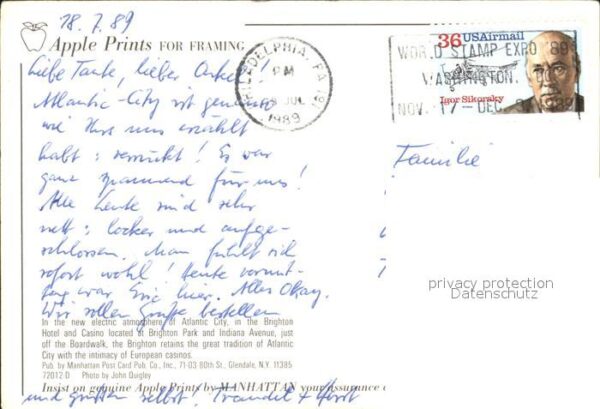 28.7.89
Apple Prints FOR FRAMING
Liebe Tante, lieber Onkel!
Atlantic-City ist genauso
wie Ihr es uns erzählt
habt: verrückt! Es war
ganz spannend für uns!
Alle Leute sind sehr
nett: locker und aufge-
schlossen. Man fühlt sich
sofort wohl! Heute vormit-
tag war Eric hier. Alles Okay.
Wir sollen Grüße bestellen
In the new electric atmosphere of Atlantic City, in the Brighton
Hotel and Casino located at Brighton Park and Indiana Avenue, just
off the Boardwalk, the Brighton retains the great tradition of Atlantic
City with the intimacy of European casinos.
Pub. by Manhattan Post Card Pub. Co., Inc., 71-03 80th St., Glendale, N.Y. 11385
72012-D Photo by John Quigley
Insist on genuine Apple Prints by MANHATTAN your assurance
und grüßen selbst! Traudel + Horst
PHILADELPHIA, PA
PM
JUL
1989
36 USAirmail
Igor Sikorsky
WORLD STAMP EXPO '89
WASHINGTON,
NOV. 17 - DEC. 1989
Familie
privacy protection
Datenschutz